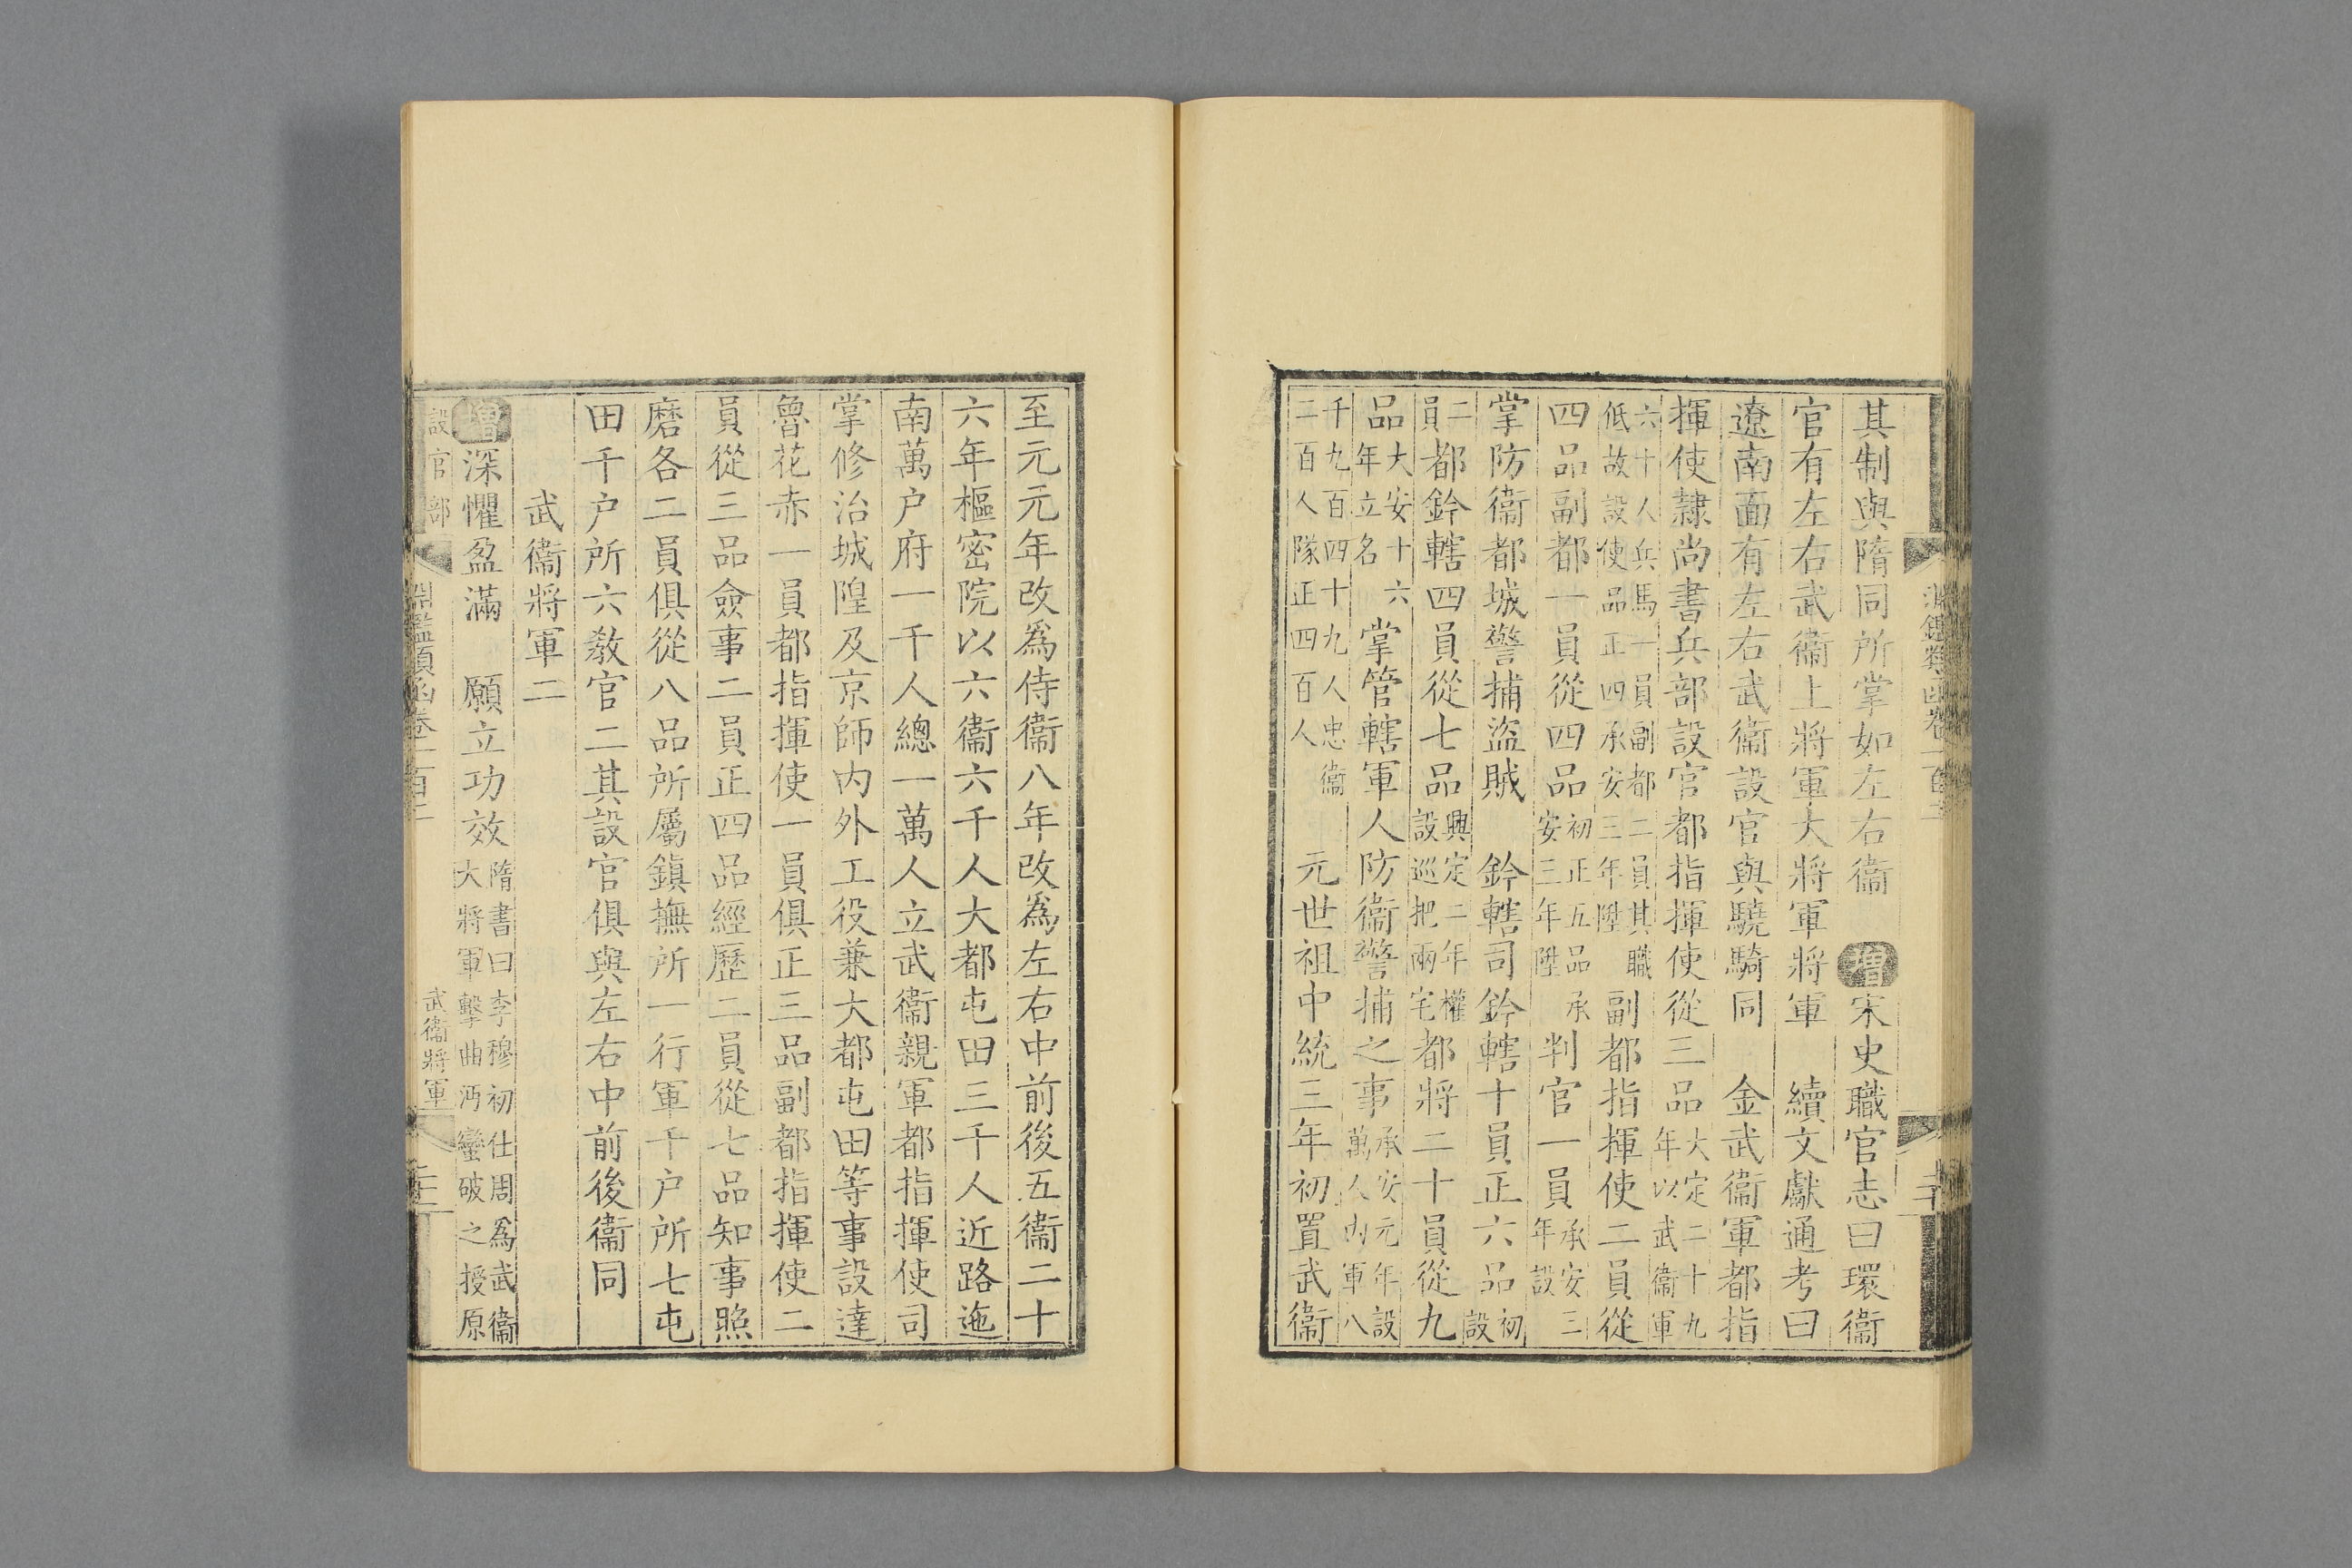 其制與隋同所掌如左右衞　增宋史職官志曰環衞
官有左右武衞上將軍大將軍將軍　續文獻通考曰
遼南面有左右武衞設官與驍騎同　金武衞軍都指
揮使隸尚書兵部設官都指揮使從三品大定二十九年以武衞軍
六十人兵馬一員副都二員其職低故設使品正四承安三年陞副都指揮使二員從
四品副都一員從四品初正五品承安三年陞判官一員承安三年設
掌防衞都城警捕盜賊　鈐轄司鈐轄十員正六品初設
二員都鈐轄四員從七品興定二年權設巡把兩宅都將二十員從九
品大安十六年立名掌管轄軍人防衞警捕之事承安元年設萬人內軍八
千九百四十九人忠衞二百人隊正四百人　元世祖中統三年初置武衞
至元元年改爲侍衞八年改爲左右中前後五衞二十
六年樞密院以六衞六千人大都屯田三千人近路迤
南萬户府一千人總一萬人立武衞親軍都指揮使司
掌修治城隍及京師內外工役兼大都屯田等事設達
魯花赤一員都指揮使一員俱正三品副都指揮使二
員從三品僉事二員正四品經歷二員從七品知事照
磨各二員俱從八品所屬鎮撫所一行軍千户所七屯
田千户所六教官二其設官俱與左右中前後衞同
武衞將軍二
增深懼盈滿　願立功效隋書曰李穆初仕周爲武衞大將軍擊曲沔蠻破之授原
設官部　淵鑑類函卷一百二　武衞將軍